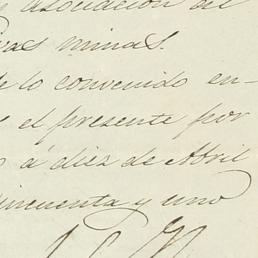 asociación de
minas.
de lo convenido en-
el presente por
á diez de Abril
cincuenta y uno